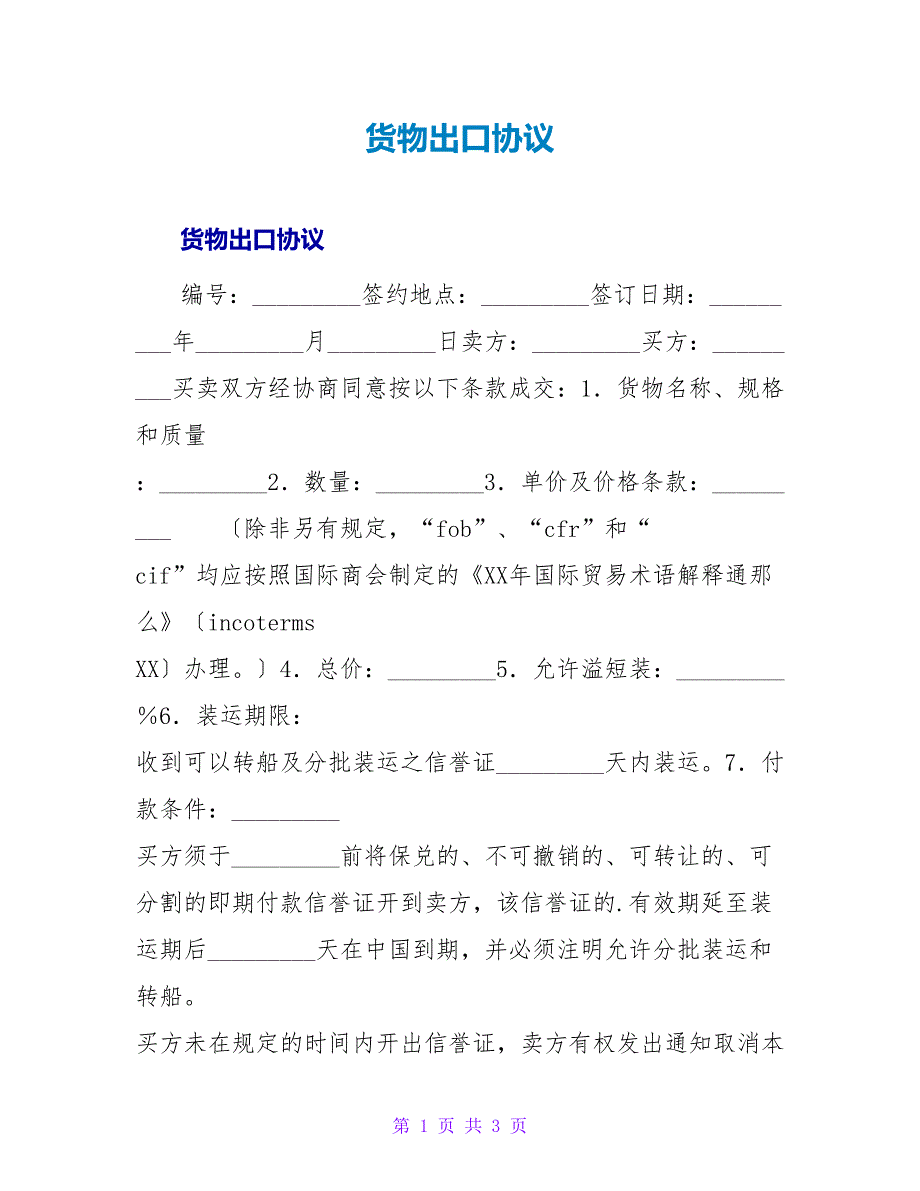 货物出口协议
货物出口协议
编号：_________签约地点：_________签订日期：______
___年_________月_________日卖方：_________买方：______
___买卖双方经协商同意按以下条款成交：1．货物名称、规格
和质量
：_________2．数量：_________3．单价及价格条款：______
___　　〔除非另有规定，“fob”、“cfr”和“
cif”均应按照国际商会制定的《XX年国际贸易术语解释通那
么》〔incoterms
XX〕办理。〕4．总价：_________5．允许溢短装：_________
％6．装运期限：
收到可以转船及分批装运之信誉证_________天内装运。7．付
款条件：_________
买方须于_________前将保兑的、不可撤销的、可转让的、可
分割的即期付款信誉证开到卖方，该信誉证的.有效期延至装
运期后_________天在中国到期，并必须注明允许分批装运和
转船。
买方未在规定的时间内开出信誉证，卖方有权发出通知取消本
第 1 页 共 3 页